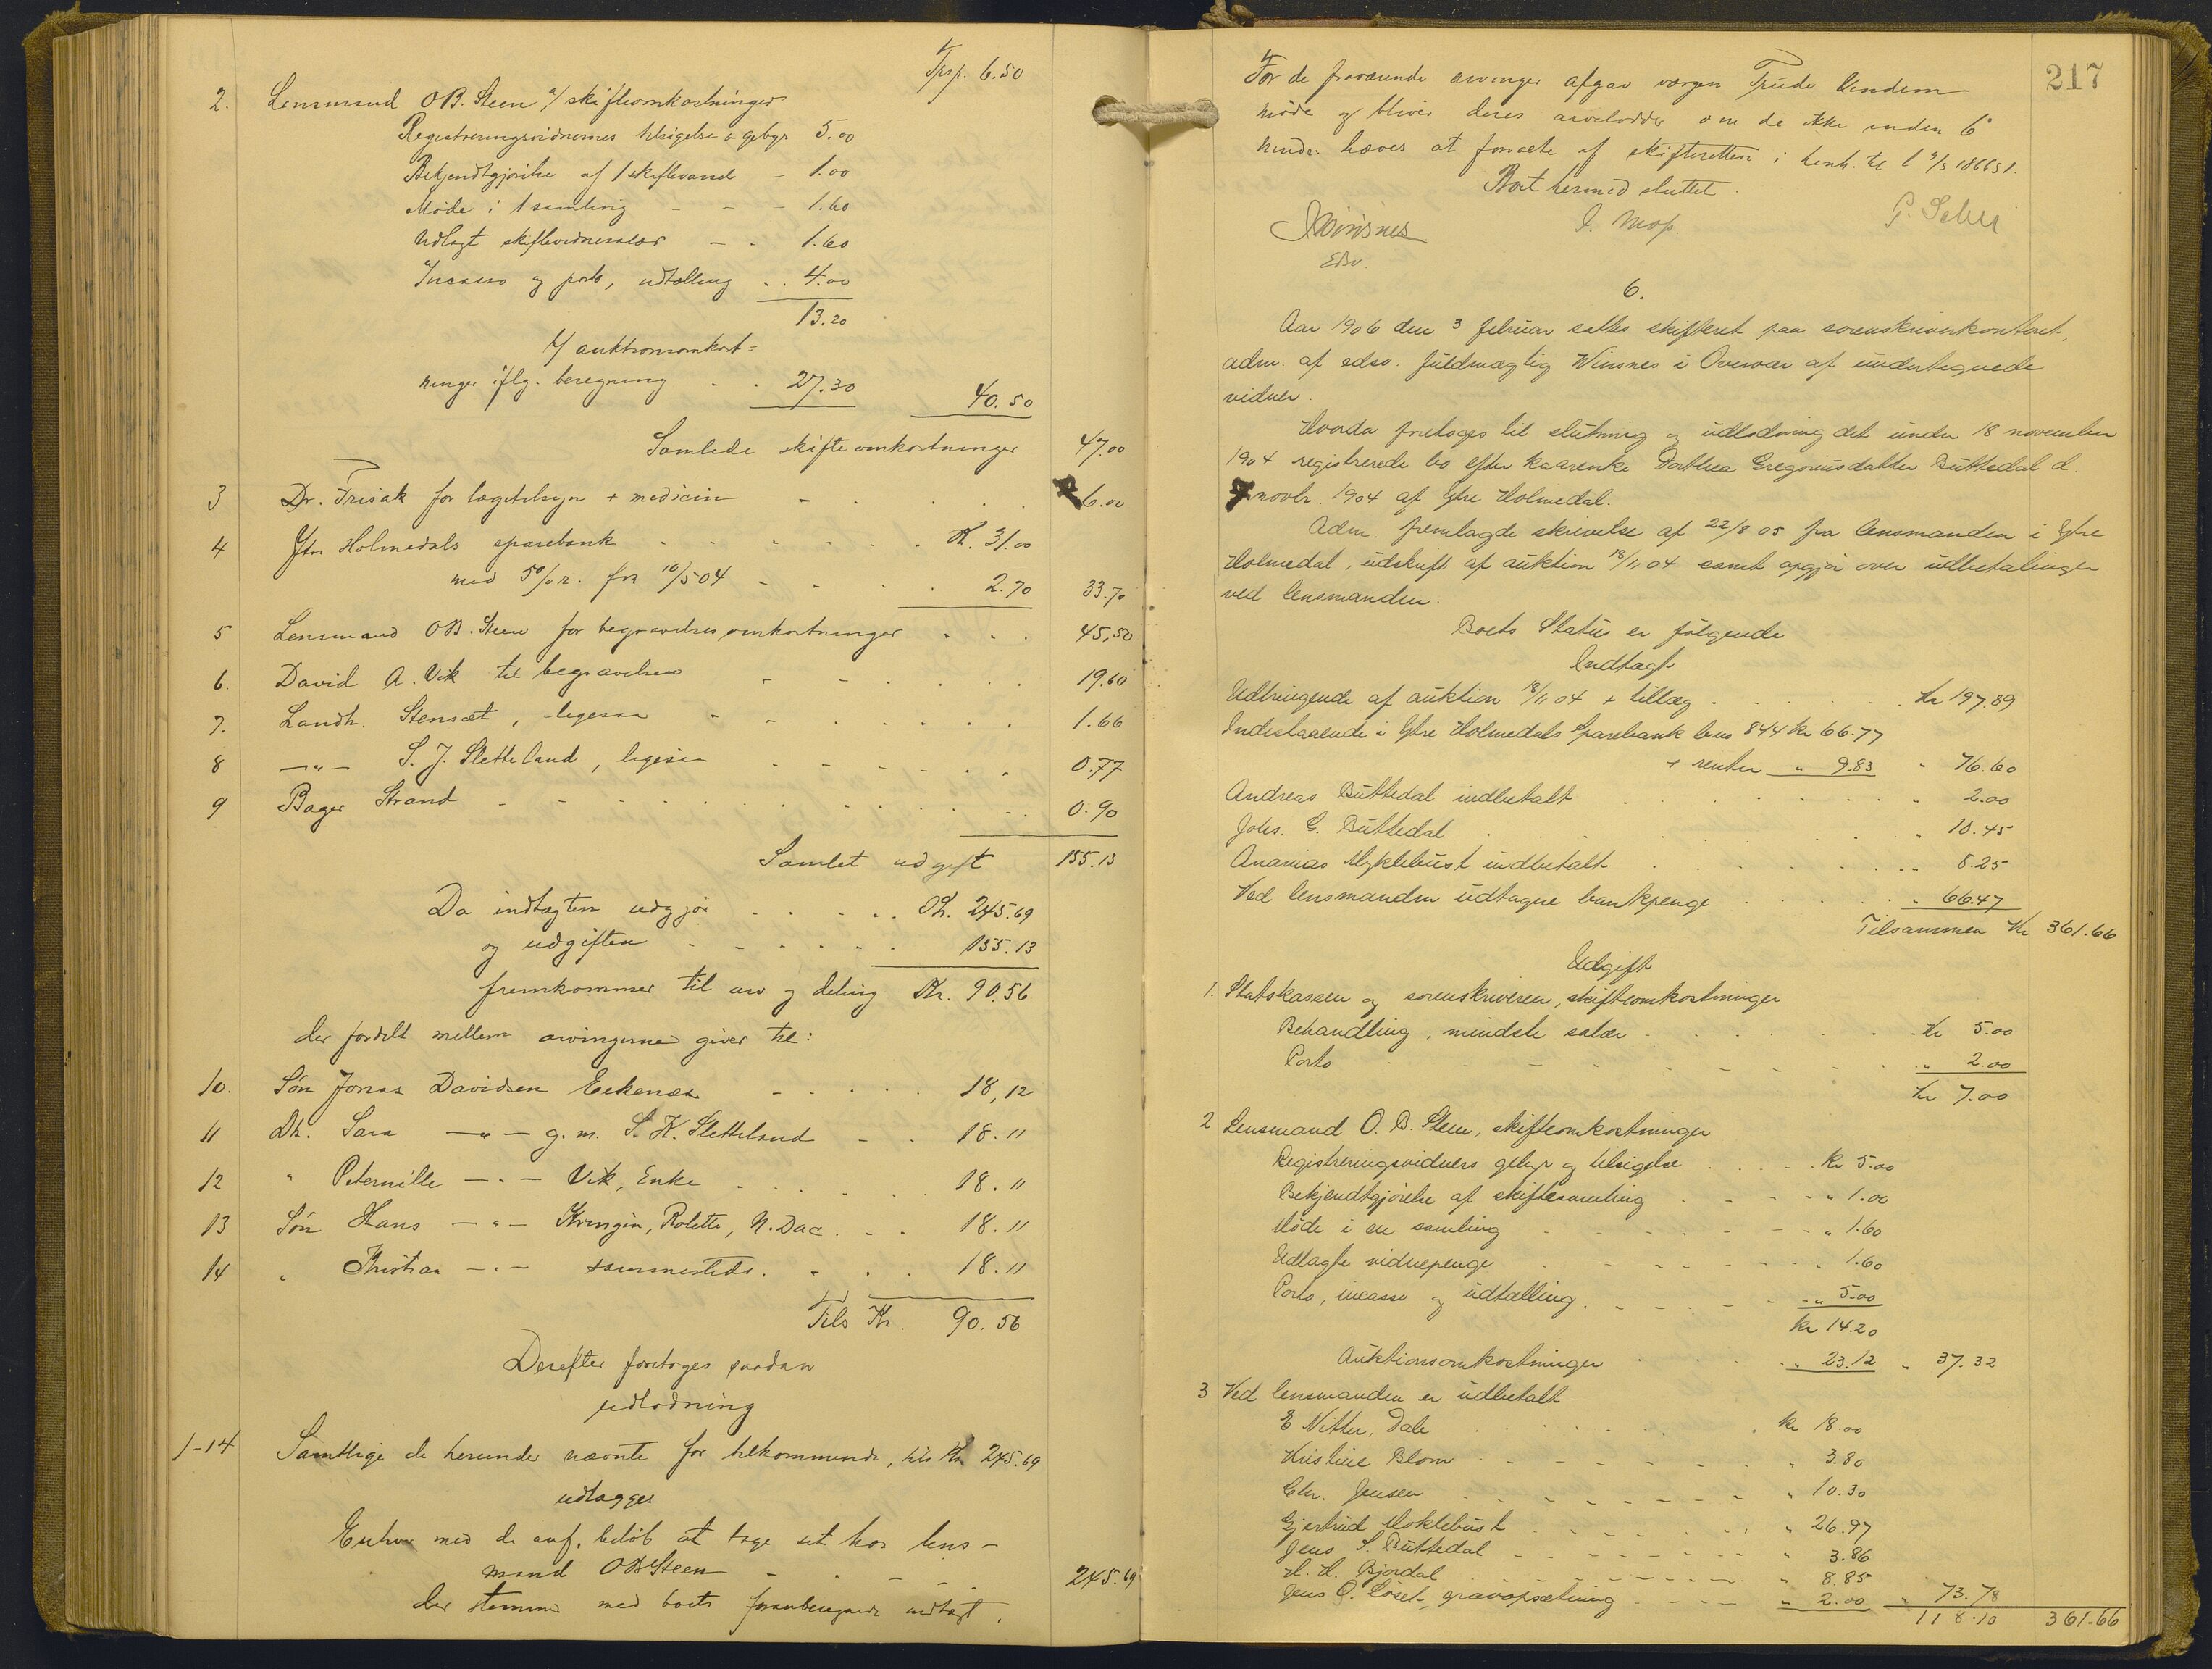 Trsp. 6.50
2. Lensmand OB. Steen a/ skifteomkostninger
Registreringsvidnernes tilsigelse & gebyr 5.00
Bekjendtgjörelse af 1 skiftevarsel - 1.00
Møde i 1 samling - - - 1.60
Udlagt skiftevidnesalær - - 1.60
Incasso og porto, udtælling . . 4.00
13.20
b/ auktionsomkost=
ninger iflg. beregning . . 27.30 40.50
Samlede skifteomkostninger 47.00
3 Dr. Frisak for lægetilsyn + medicin - . . . . 6.00
4 Ytre Holmedals sparebank . . . . . . Kr. 31.00
med 5% r. fra 10/5 04 - . . . 2.70 33.70
5 Lensmand OB. Steen for begravelsesomkostninger . . . 45,50
6. David A. Vik til begravelsen - - . . . . 19.60
7. Landh. Stensæt, ligesaa - - . . . . . 1.66
8 —"— S. J. Sletteland, ligesaa . . . . . . 0.77
9 Bager Strand - - - . . . . . . . 0.90
Samlet udgift 155.13
Da indtægten udgjør . . . . . Kr. 245.69
og udgiften . . . . . . 155.13
fremkommer til arv og deling Kr. 90.56
der fordelt mellem arvingerne giver til:
10. Søn Jonas Davidsen Eikenæs - . . . 18,12
11 Dt. Sara —"— g. m. S. K. Sletteland - . 18.11
12 " Peternille —"— Vik, Enke . . . . . 18.11
13 Søn Hans —"— Kringen, Rolette, N. Dac. . . 18.11
14 " Kristian —"— sammesteds. . . . 18.11
Tils Kr. 90.56
Derefter foretoges saadan
udlodning
1-14 Samtlige de herunder nævnte for tilkommende, tils Kr. 245.69
udlægges
Enhver med de anf. beløb at tage ut hos lens-
mand OBSteen - . - - . 245.69
der stemmer med boets foranberegnede indtægt.
217
For de fraværende arvinger afgav værgen Trude Vindem
møde og bliver deres arvelodder om de ikke inden 6
mndr. hæves at forvalte af skifteretten i henh. til l 9/5 1866 § 1.
Boet hermed sluttet.
JWinsnes I. Mop. P. Selvi
Edsv.
6.
Aar 1906 den 3 februar sattes skifteret paa sorenskriverkontoret,
adm. af edsv. fuldmægtig Winsnes i Overvær af undertegnede
vidner.
Hvorda foretoges til slutning og udlodning det under 18 november
1904 registrerede bo efter kaarenke Dorthea Gregoriusdatter Buttedal d.
7 novbr. 1904 af Ytre Holmedal.
Adm. fremlagde skrivelse af 22/8 05 fra lensmanden i Ytre
Holmedal, udskrift af auktion 18/11 04 samt opgjør over udbetalinger
ved lensmanden.
Boets Status er følgende
Indtægt
Udbringende af auktion 18/11 04 + tillæg . . . . . . Kr 197.89
Indestaaende i Ytre Holmedals Sparebank kr 844 Kr 66.77
+ renter " 9.83 " 76.60
Andreas Buttedal indbetalt . . . . . . . " 2.00
Johs. G. Buttedal . . . . . . . . " 10.45
Ananias Myklebust indbetalt . . . . . . " 8.25
Ved lensmanden udtagne bankpenge . . . . . " 66.47
Tilsammen Kr 361.66
Udgift
1. Statskassen og sorenskriveren, skifteomkostninger
Behandling, mindste salær . . . . . . Kr 5.00
Porto . . - - - - - - . " 2.00
Kr 7.00
2 Lensmand O. B. Steen, skifteomkostninger
Registreringsvidners gebyr og tilsigelse . . . . Kr 5.00
Bekjendtgjørelse af skiftesamling . . . . " 1.00
Møde i en samling - - - - - - " 1.60
Udlagte vidnepenge . - - - - - . " 1.60
Porto, incasso og udtælling . - - - - - " 5.00
Kr 14.20
Auktionsomkostninger . . . . " 23.12 " 37.32
3 Ved lensmanden er udbetalt
E Nitter, Dale . . . . . . Kr 18.00
Kristine Blom . . - - - - - " 3.80
Chr. Jensen . . - - - - - " 10.30
Gjertrud Moklebust . . . . . . " 26.97
Jens S. Buttedal - - - - - - - " 3.86
H. H. Bjordal . . - - - - - " 8.85
Jens O. Løset, gravopsætning . - - - - " 2.00 " 73.78
118.10 361.66